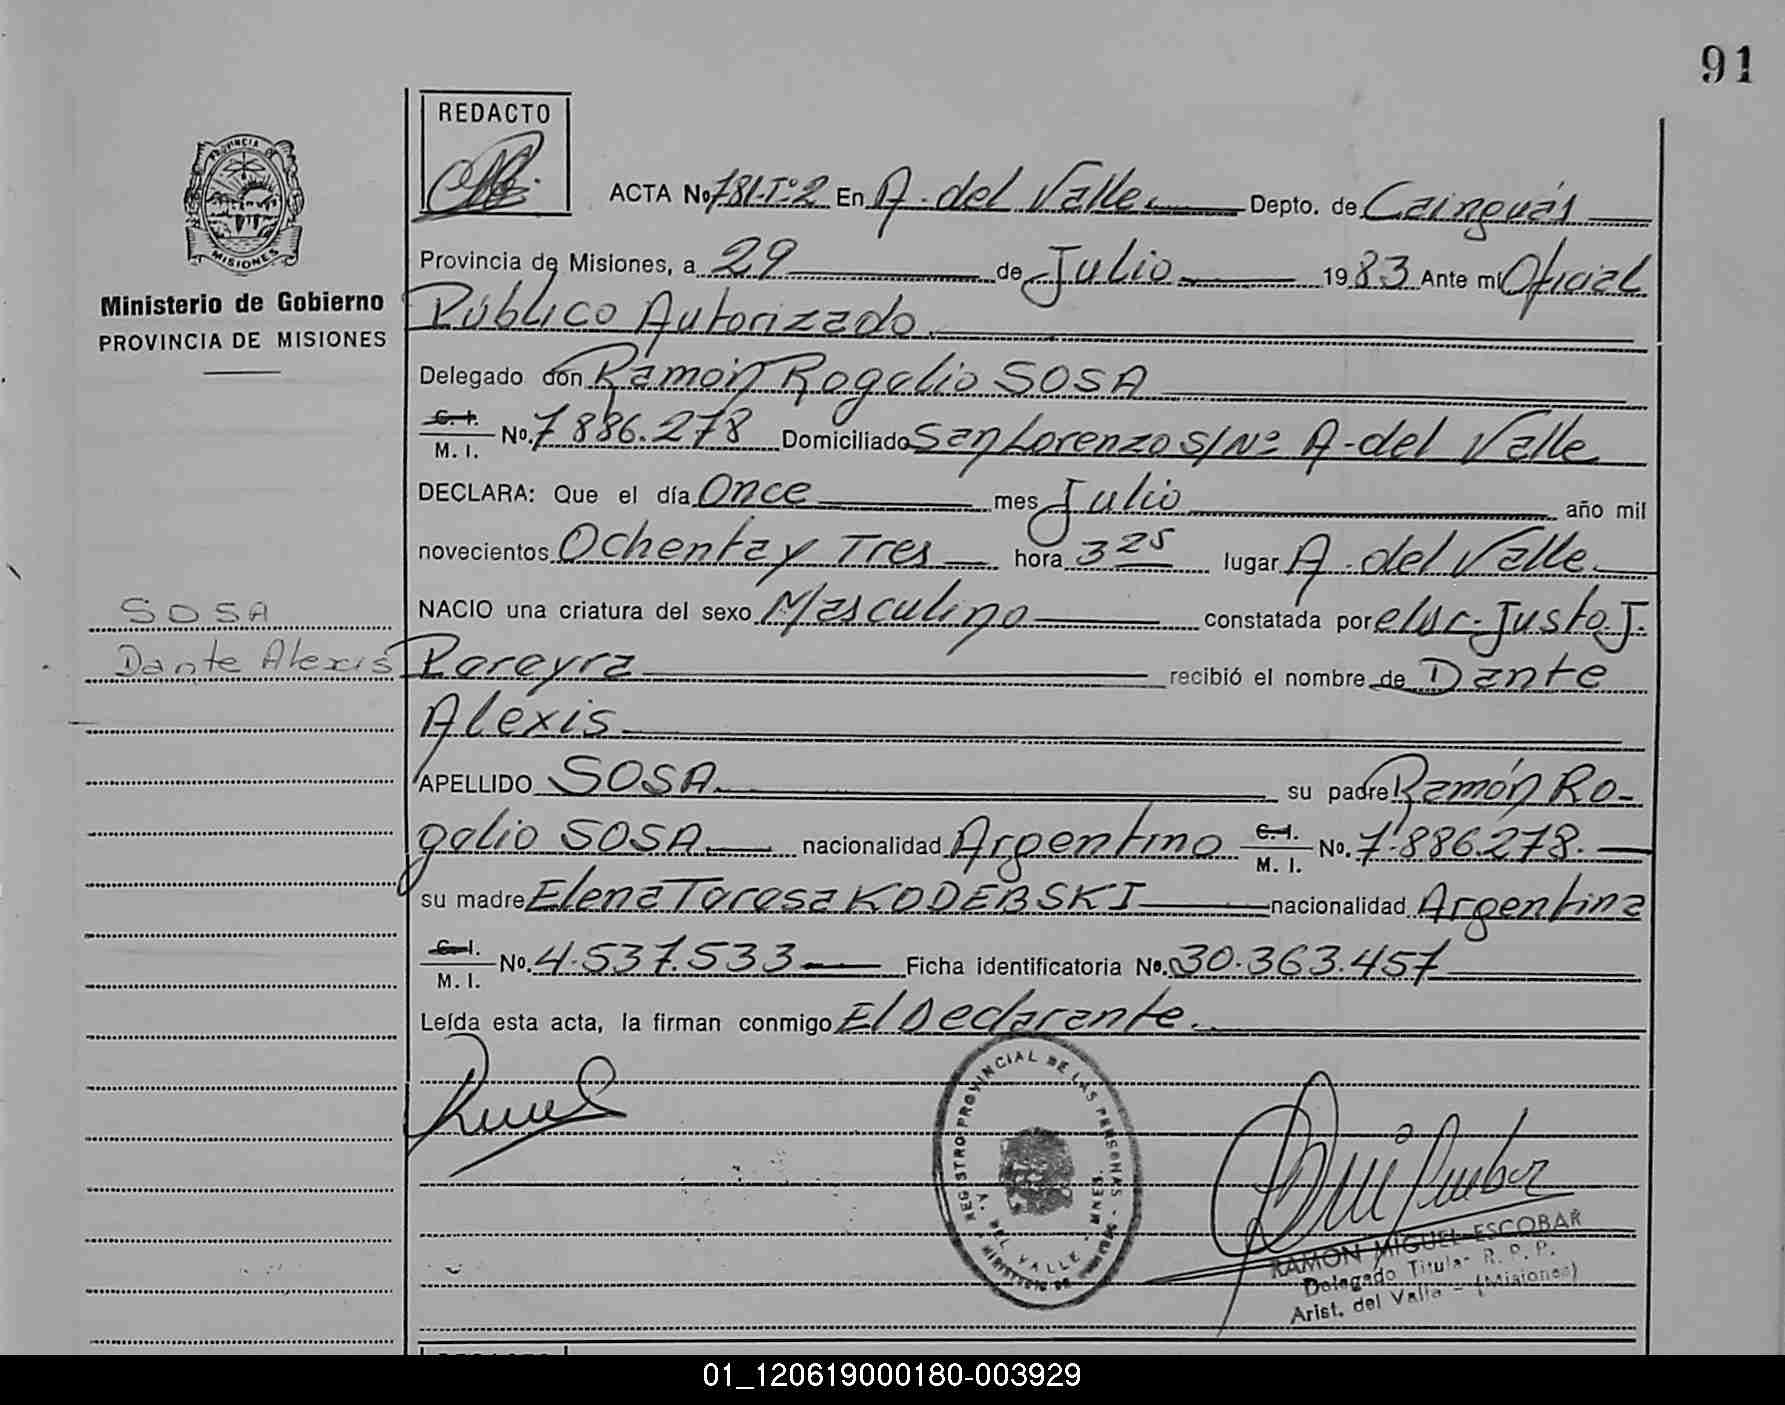 91
REDACTO
PROVINCIA DE
MISIONES
Ministerio de Gobierno
PROVINCIA DE MISIONES
ACTA No 781-Tº2 En A. del Valle Depto. de Cainguás
Provincia de Misiones, a 29 de Julio 1983 Ante mi Oficial
Público Autorizado
Delegado don Ramón Rogelio SOSA
C. I.
M. I. No. 7886.278 Domiciliado San Lorenzo S/Nº A. del Valle
DECLARA: Que el día Once mes Julio año mil
novecientos Ochenta y Tres hora 3 25 lugar A. del Valle
NACIO una criatura del sexo Masculino constatada por el sr. Justo J.
Pereyra recibió el nombre de Dante
Alexis
APELLIDO SOSA su padre Ramón Ro-
gelio SOSA nacionalidad Argentino C. I. M. I. No. 7.886.278.
su madre Elena Teresa KODEBSKI nacionalidad Argentina
C. I.
M. I. No. 4.537.533 Ficha identificatoria No. 30.363.457
Leída esta acta, la firman conmigo El Declarante.
SOSA
Dante Alexis
REGISTRO PROVINCIAL DE LAS PERSONAS
A. DEL VALLE - MNES.
MINISTERIO DE
RAMON MIGUEL ESCOBAR
Delegado Titular R. P. P.
Arist. del Valle - (Misiones)
01_120619000180-003929